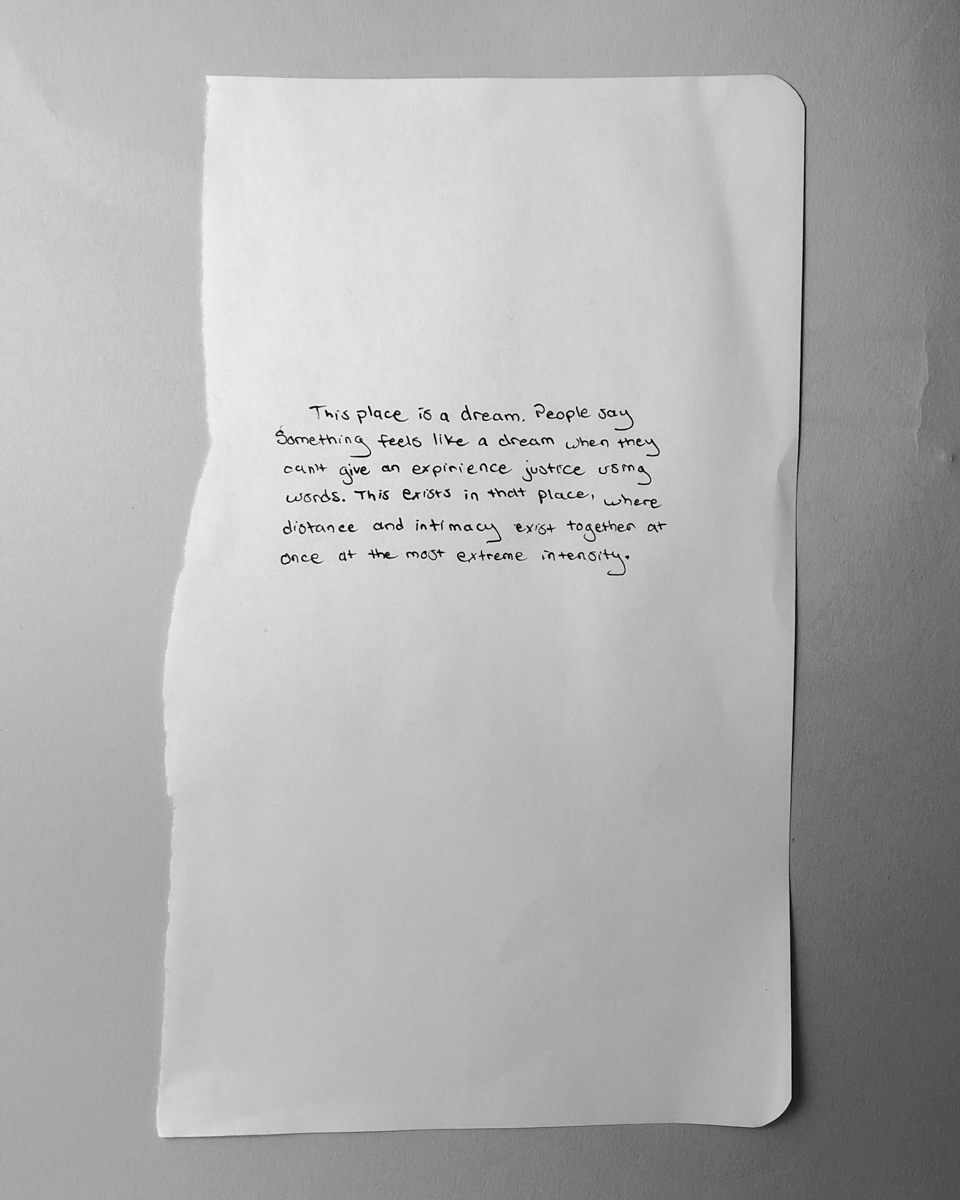 This place is a dream. People say
Something feels like a dream when they
can't give an expirience justice using
words. This exists in that place, where
distance and intimacy exist together at
once at the most extreme intensity.